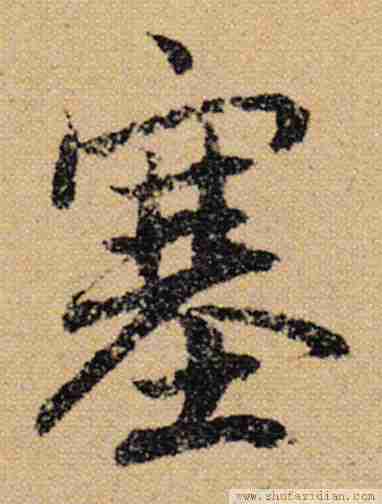 塞
www.shufazidian.com